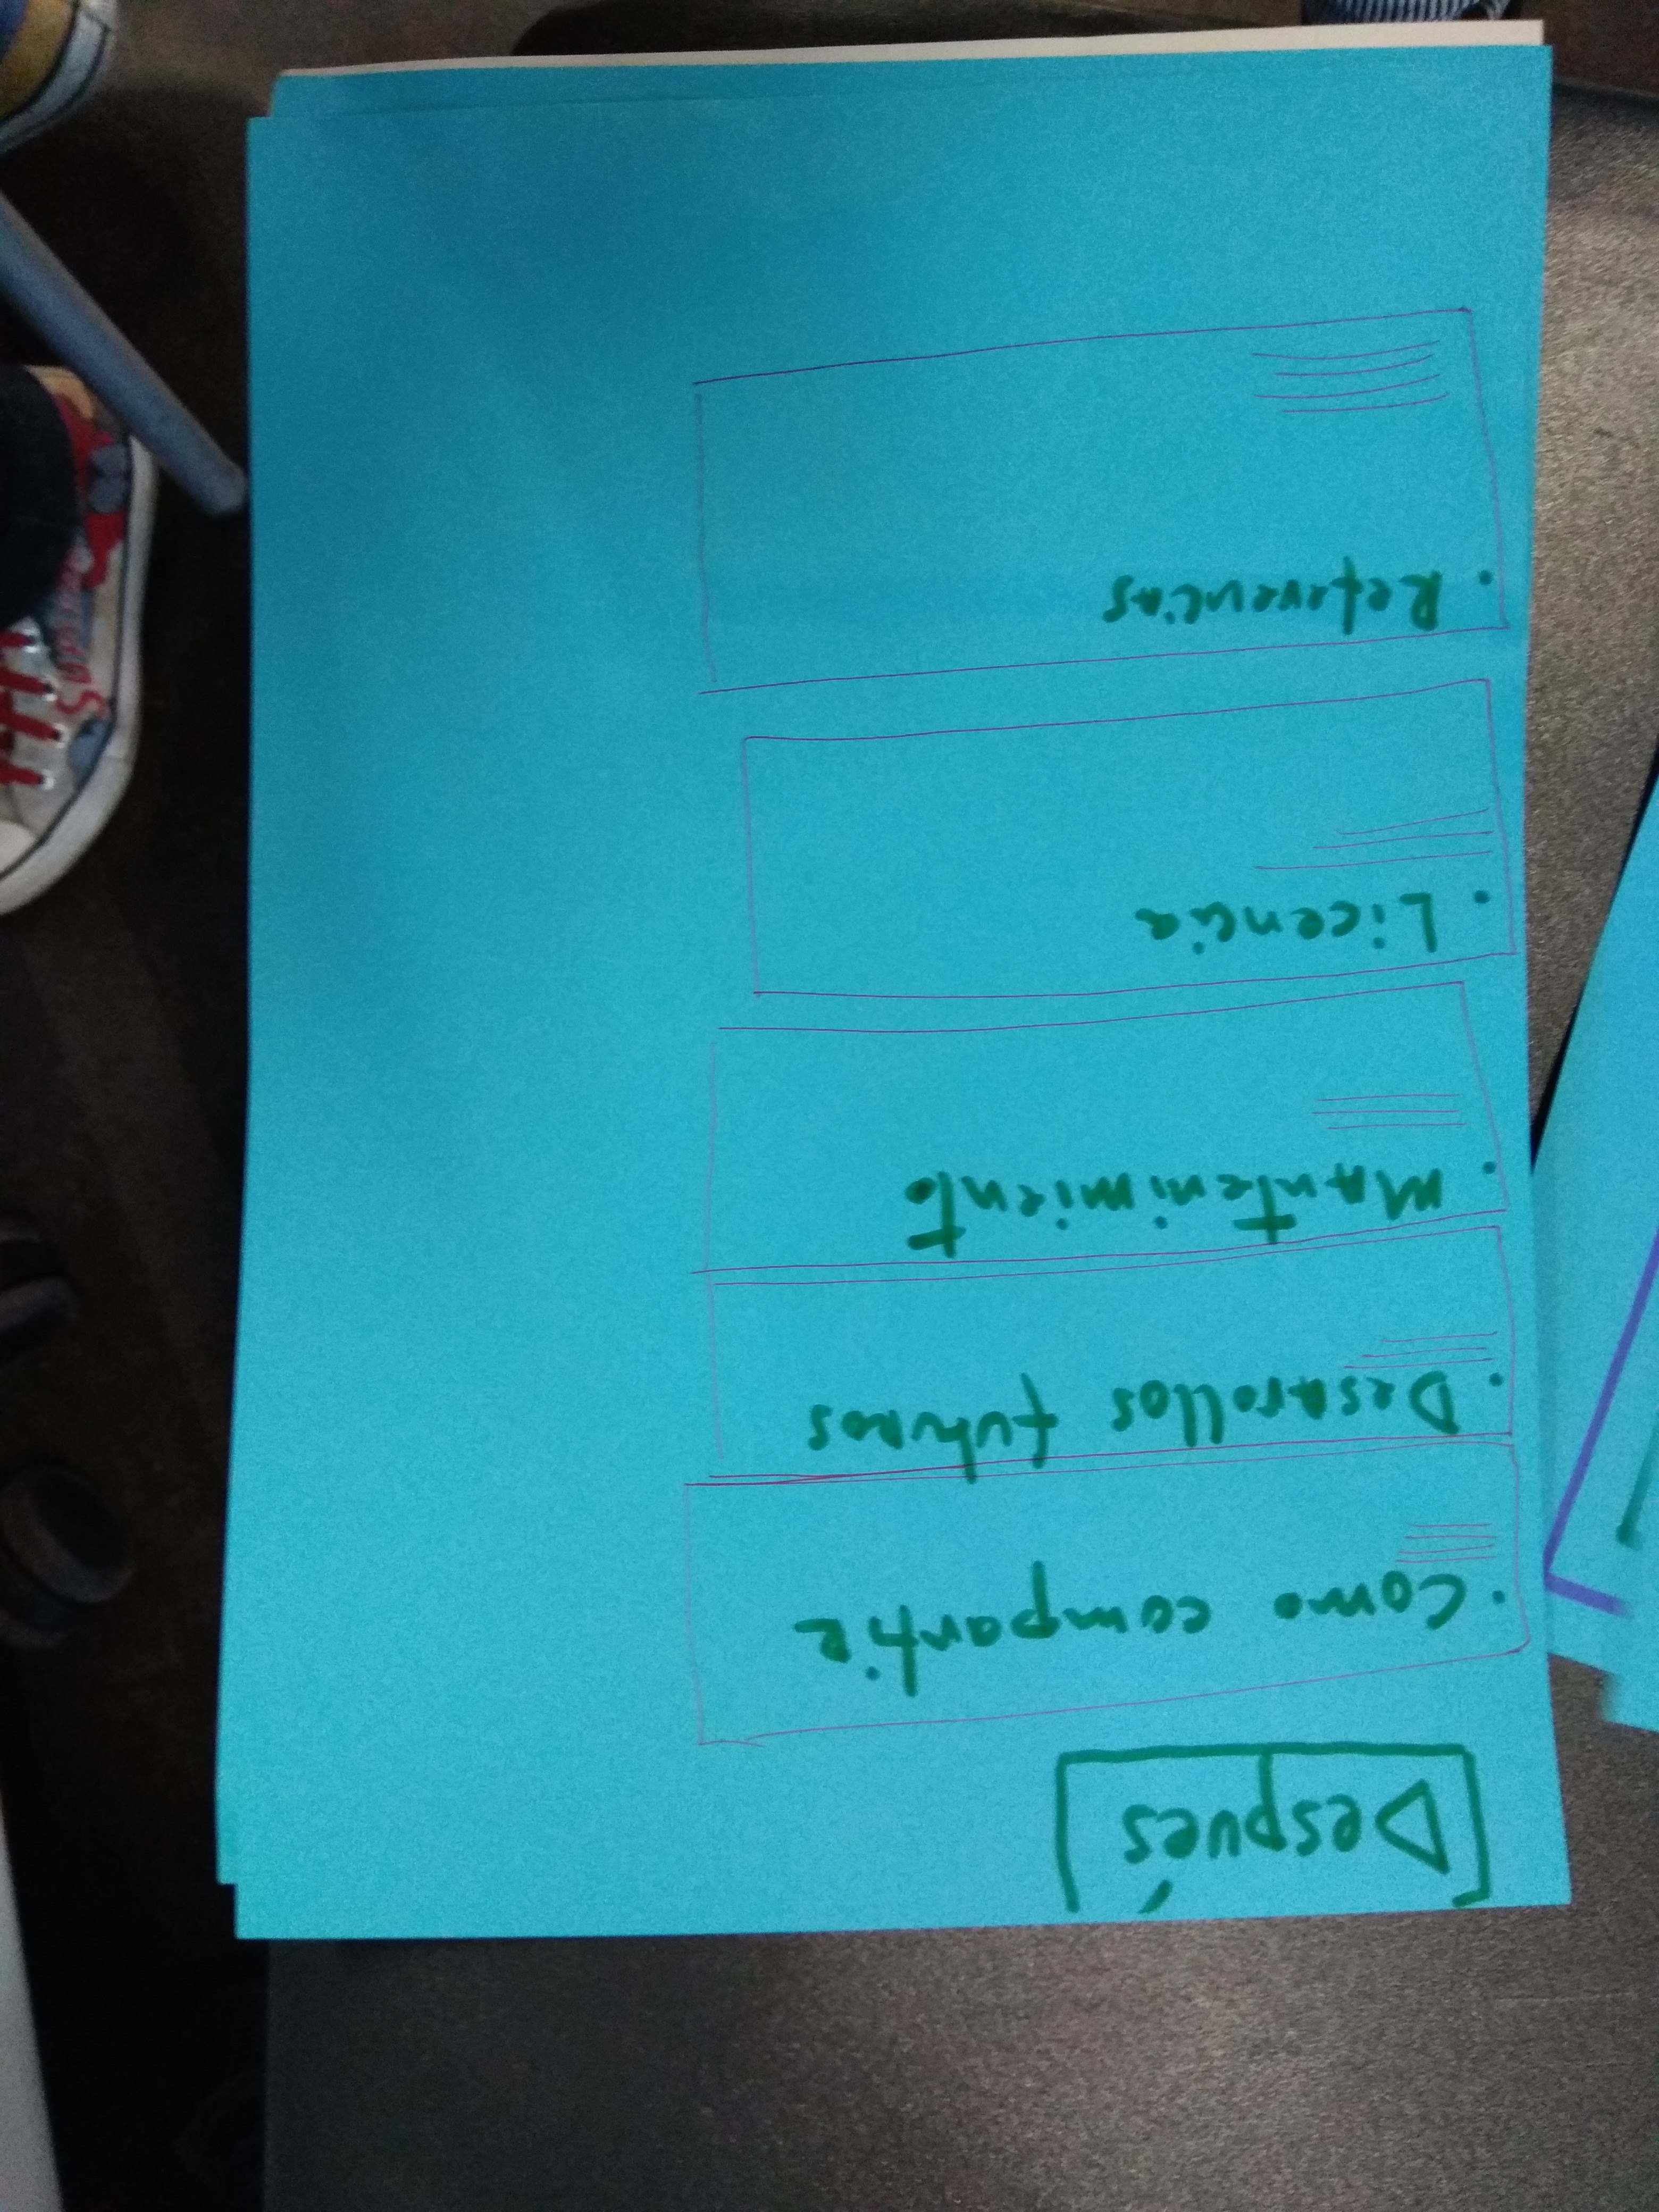 Después
• Como compartir
• Desarollos futuros
• Mantenimiento
• Licencia
• Referencias